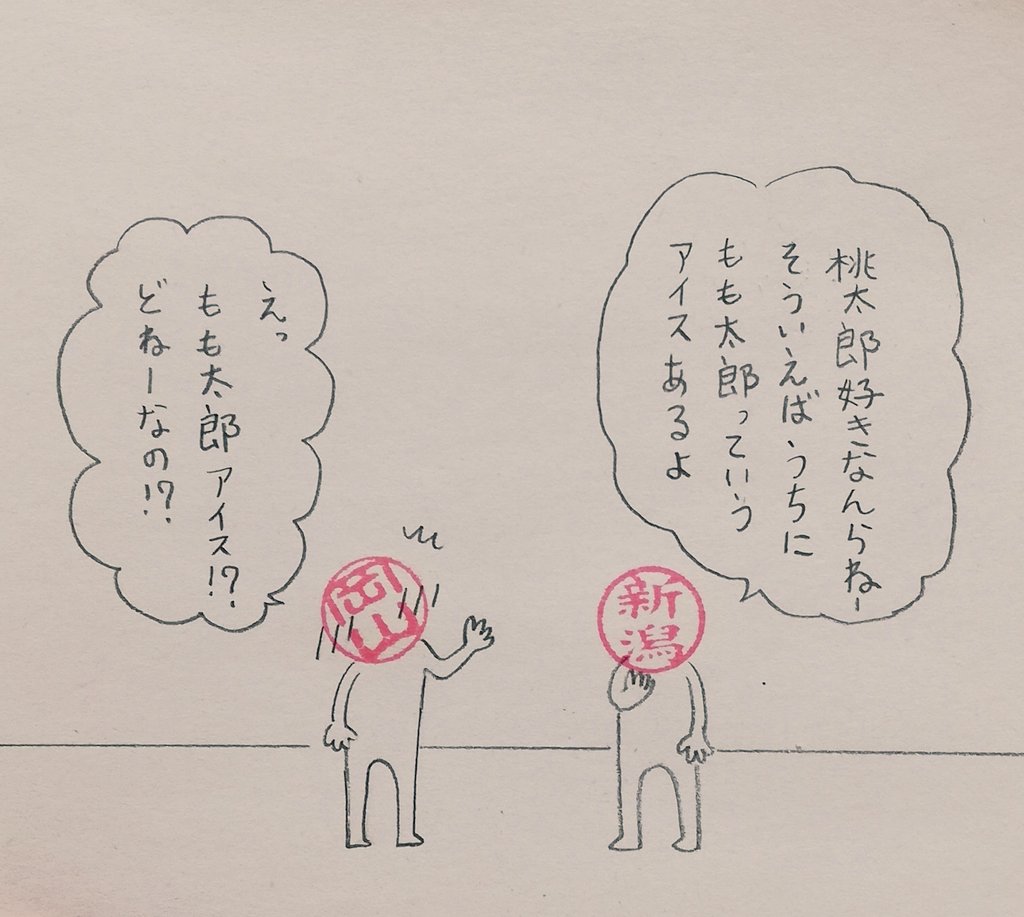 桃太郎好きなんらねー
そういえばうちに
もも太郎っていう
アイスあるよ
えっ
もも太郎アイス!?
どねーなの!?
岡山
新潟